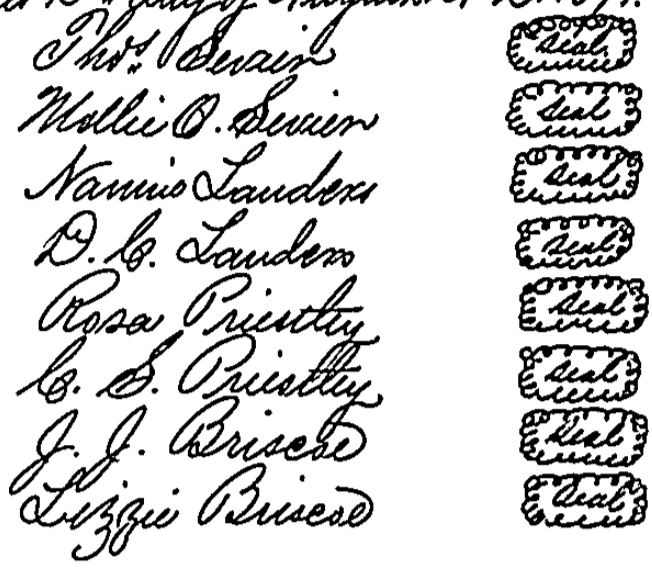 day of August A. D. 191
Thos. Sevier Seal
Mollie O. Sevier Seal
Nannie Landers Seal
D. C. Landers Seal
Rosa Priestley Seal
C. S. Priestley Seal
J. J. Briscoe Seal
Lizzie Briscoe Seal